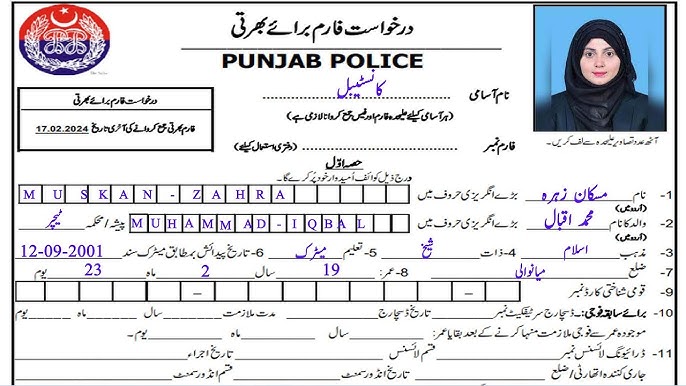 درخواست فارم برائے بھرتی
PUNJAB POLICE
نام آسامی کانسٹیبل
(ہر آسامی کیلئے علیحدہ فارم اور فیس جمع کروانا لازمی ہے)
درخواست فارم برائے بھرتی
فارم بھرتی جمع کروانے کی آخری تاریخ 17.02.2024
فارم نمبر (دفتری استعمال کیلئے)
آٹھ عدد تصاویر علیحدہ سے لف کریں۔
حصہ اوّل
درج ذیل کوائف اُمیدوار خود پُر کرے گا۔
1- نام (اردو میں) مسکان زہرہ بڑے انگریزی حروف میں MUSKAN-ZAHRA
2- والد کا نام (اردو میں) محمد اقبال بڑے انگریزی حروف میں MUHAMMAD-IQBAL پیشہ/محکمہ ٹیچر
3- مذہب اسلام 4- ذات شیخ 5- تعلیم میٹرک 6- تاریخ پیدائش بمطابق میٹرک سند 12-09-2001
7- ضلع میانوالی 8- عمر: 19 سال 2 ماہ 23 یوم
9- قومی شناختی کارڈ نمبر
10- برائے سابقہ فوجی: ڈسچارج سرٹیفکیٹ نمبر تاریخ ڈسچارج مدت ملازمت سال ماہ یوم
موجودہ عمر سے فوجی ملازمت منہا کرنے کے بعد بقایا عمر: سال ماہ یوم۔
11- ڈرائیونگ لائسنس نمبر قسم لائسنس تاریخ اجراء
جاری کنندہ اتھارٹی/ضلع قسم انڈورسمنٹ تاریخ انڈورسمنٹ